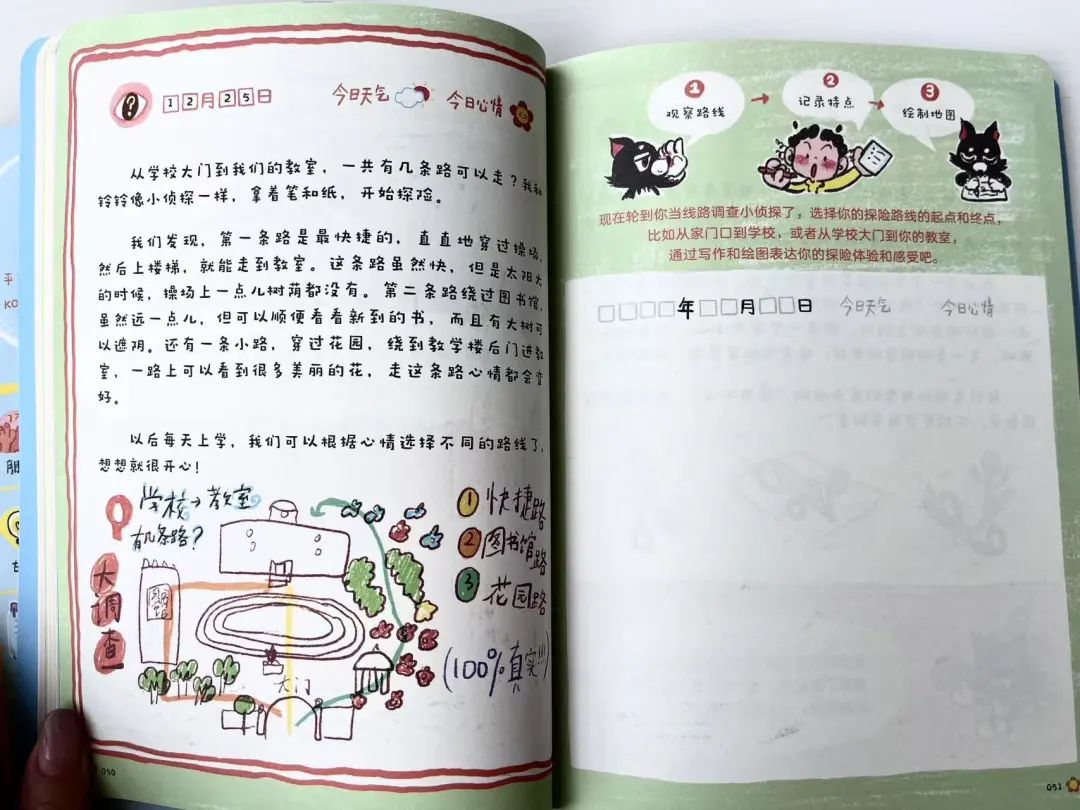 12月25日 今日天气 今日心情
从学校大门到我们的教室，一共有几条路可以走？我和
铃铃像小侦探一样，拿着笔和纸，开始探险。
我们发现，第一条路是最快捷的，直直地穿过操场，
然后上楼梯，就能走到教室。这条路虽然快，但是太阳大
的时候，操场上一点儿树荫都没有。第二条路绕过图书馆，
虽然远一点儿，但可以顺便看看新到的书，而且有大树可
以遮阴。还有一条小路，穿过花园，绕到教学楼后门进教
室，一路上可以看到很多美丽的花，走这条路心情都会变
好。
以后每天上学，我们可以根据心情选择不同的路线了，
想想就很开心！
学校→教室
有几条路？
大调查
①快捷路
②图书馆路
③花园路
(100%真实!!!)
图书馆
大门
050
① 观察路线
② 记录特点
③ 绘制地图
现在轮到你当线路调查小侦探了，选择你的探险路线的起点和终点，
比如从家门口到学校，或者从学校大门到你的教室，
通过写作和绘图表达你的探险体验和感受吧。
□□□□年□□月□□日 今日天气 今日心情
051